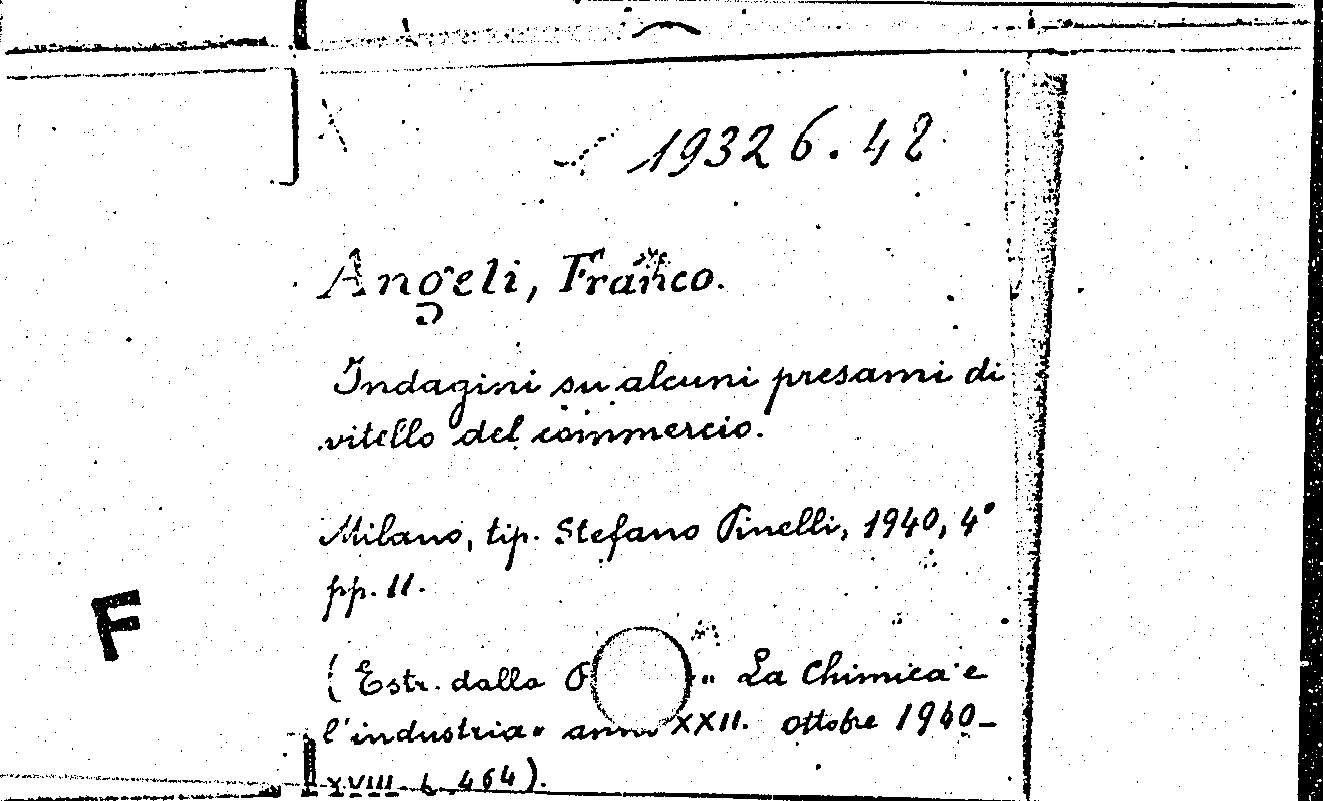 19326.42
Angeli, Franco.
Indagini su alcuni presami di
vitello del commercio.
Milano, tip. Stefano Pinelli, 1940, 4°
pp. 11.
F
(Estr. dalla " La Chimica e
l'industria" anno XXII. ottobre 1940-
XVIII. 464).